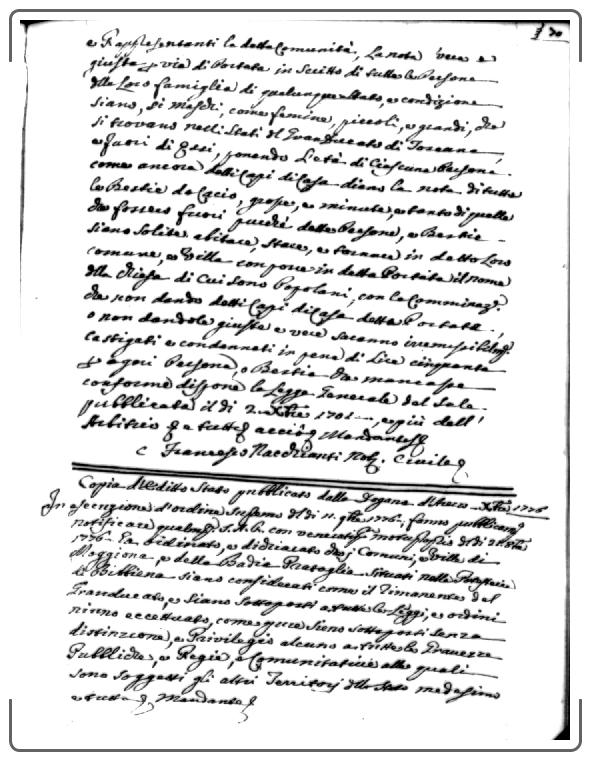 e Rappresentanti la detta Comunità, La nota vera e
giusta p via di Portata in Scritto di tutte le Persone
dlla Loro famiglia di qualunque stato, e condizione
siano, sì maschi, come femine, piccoli, e grandi, che
si trovano nelli Stati del Granducato di Toscana,
e fuori di Essi, ponendo L'età di Ciascuna Persona.
come ancora detti Capi di Casa diano la nota di tutte
le Bestie da Cacio, grosse, e minute, e tanto di quelle
che fossero fuori purchè dette Persone, e Bestie
siano Solite abitare, stare, e tornare in detto Loro
comune, e Villa con porre in detta Portata il nome
dlla Chiesa di Cui sono Popolani, con la Comminaz.
che non dando detti Capi di Casa detta Portata
o non dandola giusta e vera saranno irremisibilm.
castigati e condannati in pena di Lire cinquanta
p ogni Persona, o Bestia che mancasse
conforme dispone la Legge Generale del Sale
pubblicata il dì 2 Xbre 1701, e più dell'
Arbitrio e tutto Mandante
Francesco Nacchianti Not. Civile
Copia d'Editto Stato pubblicato dalla Dogana d'Arezzo Xbre 1776
In esecuzione d'ordine Supremo dl dì 11 9bre 1776, fanno pubblicam
notificare S. A. R. con motuproprio dl dì
1776 Ha ordinato, e dichiarato che i Comuni, e Ville di
Moggiona, e della Badia Prataglia Situati nella Potesteria
di Bibbiena siano considerati come il rimanente del
Granducato, e siano Sottoposti a tutte le Leggi, e ordini
niuno eccettuato, come pure sieno sottoposti senza
distinzione, e Privilegio alcuno a tutte le Gravezze
Pubbliche, e Regie, e Comunitative alle quali
sono soggetti gli altri Territorj dllo Stato medesimo
e tutto Mandante